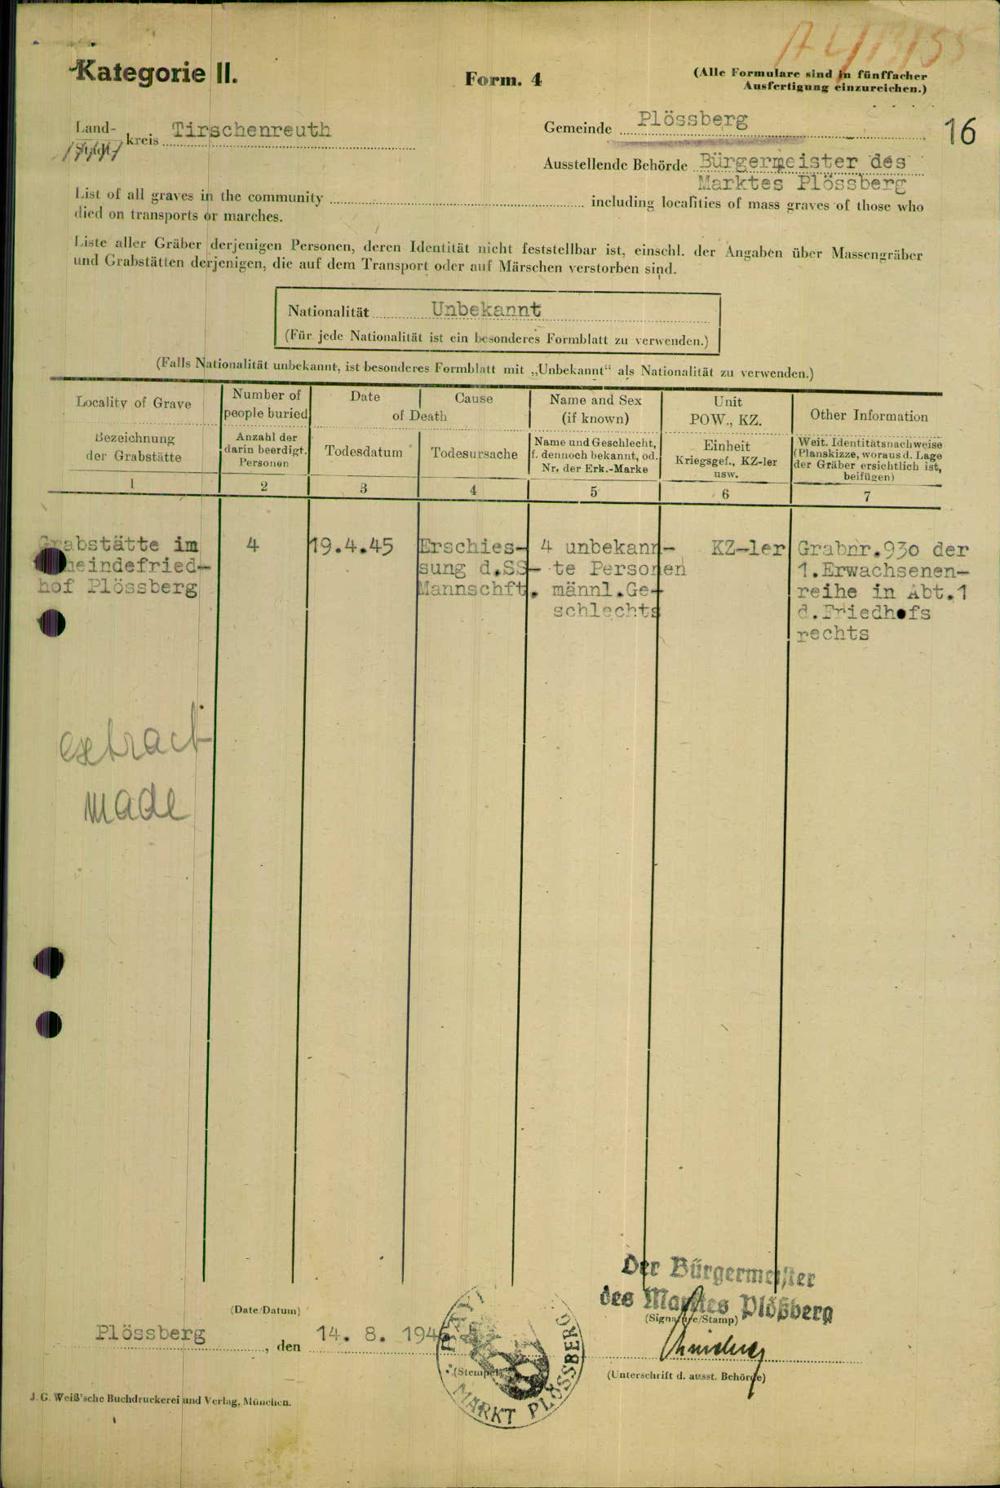 Kategorie II.
Form. 4
(Alle Formulare sind in fünffacher
Ausfertigung einzureichen.)
Land-
kreis Tirschenreuth
Gemeinde Plössberg
16
Ausstellende Behörde Bürgermeister des
Marktes Plössberg
List of all graves in the community including localities of mass graves of those who
died on transports or marches.
Liste aller Gräber derjenigen Personen, deren Identität nicht feststellbar ist, einschl. der Angaben über Massengräber
und Grabstätten derjenigen, die auf dem Transport oder auf Märschen verstorben sind.
Nationalität Unbekannt
(Für jede Nationalität ist ein besonderes Formblatt zu verwenden.)
(Falls Nationalität unbekannt, ist besonderes Formblatt mit „Unbekannt“ als Nationalität zu verwenden.)
Locality of Grave
Number of
people buried
Date Cause
of Death
Name and Sex
(if known)
Unit
POW., KZ.
Other Information
Bezeichnung
der Grabstätte
Anzahl der
darin beerdigt.
Personen
Todesdatum
Todesursache
Name und Geschlecht,
f. dennoch bekannt, od.
Nr. der Erk.-Marke
Einheit
Kriegsgef., KZ-ler
usw.
Weit. Identitätsnachweise
(Planskizze, woraus d. Lage
der Gräber ersichtlich ist,
beifügen)
1 2 3 4 5 6 7
Grabstätte im 4 19.4.45 Erschies- 4 unbekann- KZ-ler Grabnr.930 der
meindefried- sung d.SS- te Personen 1.Erwachsenen-
hof Plössberg Mannschft. männl.Ge- reihe in Abt.1
schlechts d.Friedhofs
rechts
extract
made
Der Bürgermeister
des Marktes Plößberg
(Date/Datum)
(Signature/Stamp)
Plössberg, den 14. 8. 194
(Stempel)
MARKT PLÖSSBERG
(Unterschrift d. ausst. Behörde)
J. G. Weiß'sche Buchdruckerei und Verlag, München.